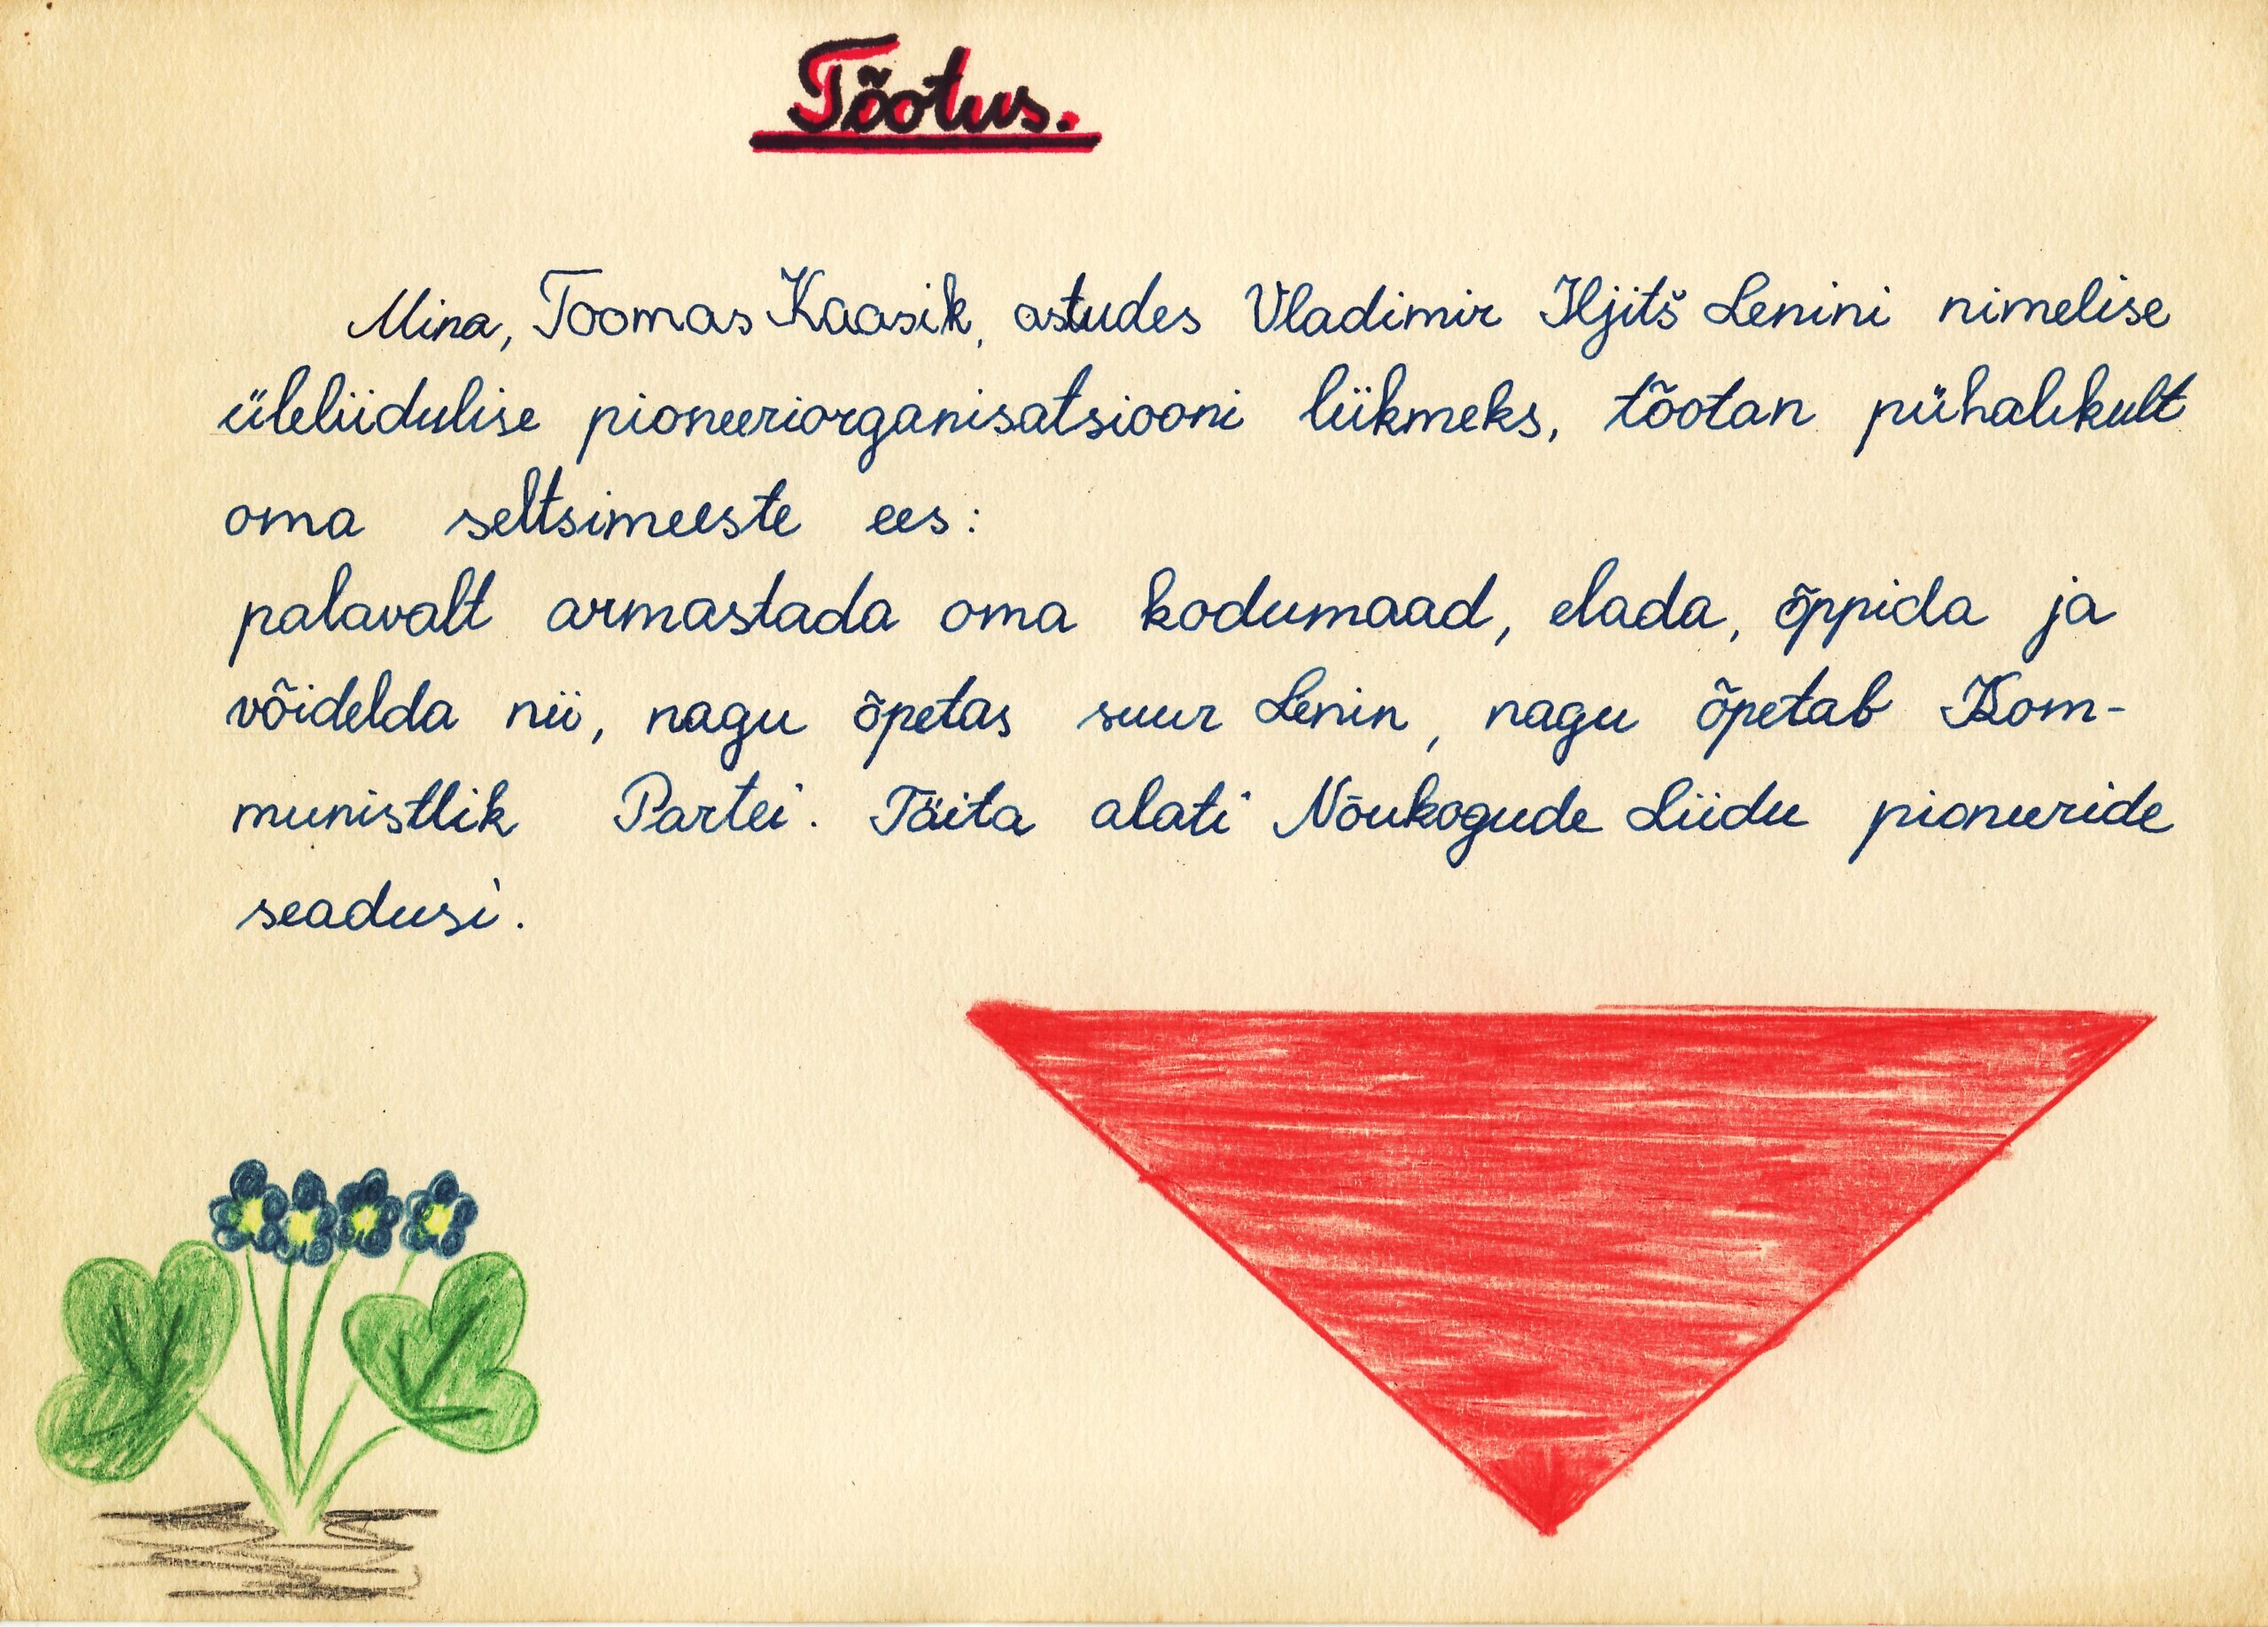 Tõotus.
Mina, Toomas Kaasik, astudes Vladimir Iljitš Lenini nimelise
üleliidulise pioneeriorganisatsiooni liikmeks, tõotan pühalikult
oma seltsimeeste ees:
palavalt armastada oma kodumaad, elada, õppida ja
võidelda nii, nagu õpetas suur Lenin, nagu õpetab Kom-
munistlik Partei. Täita alati Nõukogude Liidu pioneeride
seadusi.